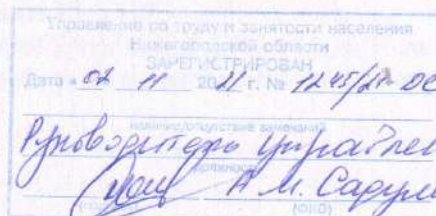 Управление по труду и занятости населения
Нижегородской области
ЗАРЕГИСТРИРОВАН
Дата « 02 11 2021 г. № 1245/21-ОС
наличие/отсутствие замечаний
Руководитель
должность
А.М.
(ФИО)